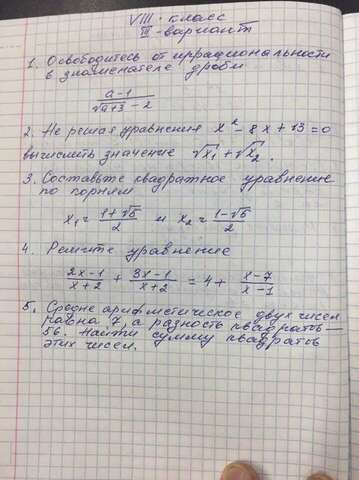 VIII - класс
III - вариант
1. Освободитесь от иррациональности
в знаменателе дроби
a-1
√a+3 - 2
2. Не решая уравнения x² - 8x + 13 = 0
вычислить значение √x₁ + √x₂.
3. Составьте квадратное уравнение
по корням
x₁ = 1+√5 / 2 и x₂ = 1-√5 / 2
4. Решите уравнение
2x-1 / x+2 + 3x-1 / x+2 = 4 + x-7 / x-1
5. Средне арифмистическое двух чисел
равна 7, а разность квадратов —
56. Найти сумму квадратов
этих чисел.